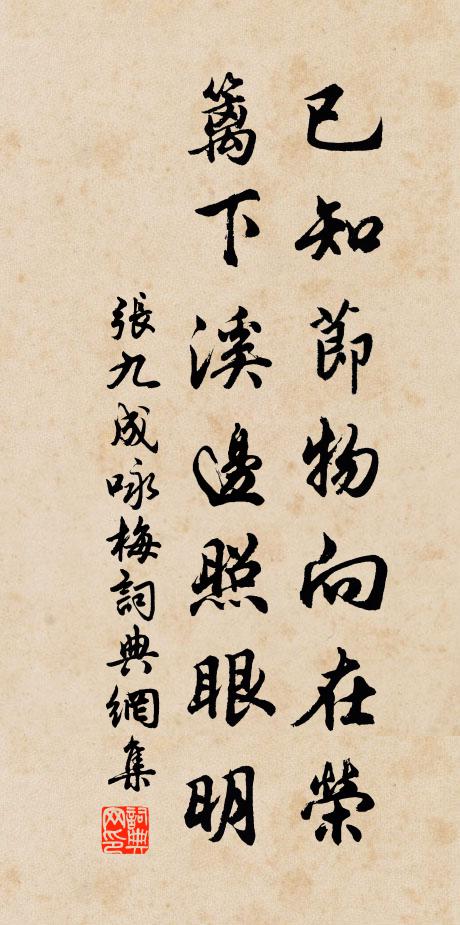 已知節物向在榮
籬下溪邊照眼明
張九成咏梅詞典網集
詞典
网印